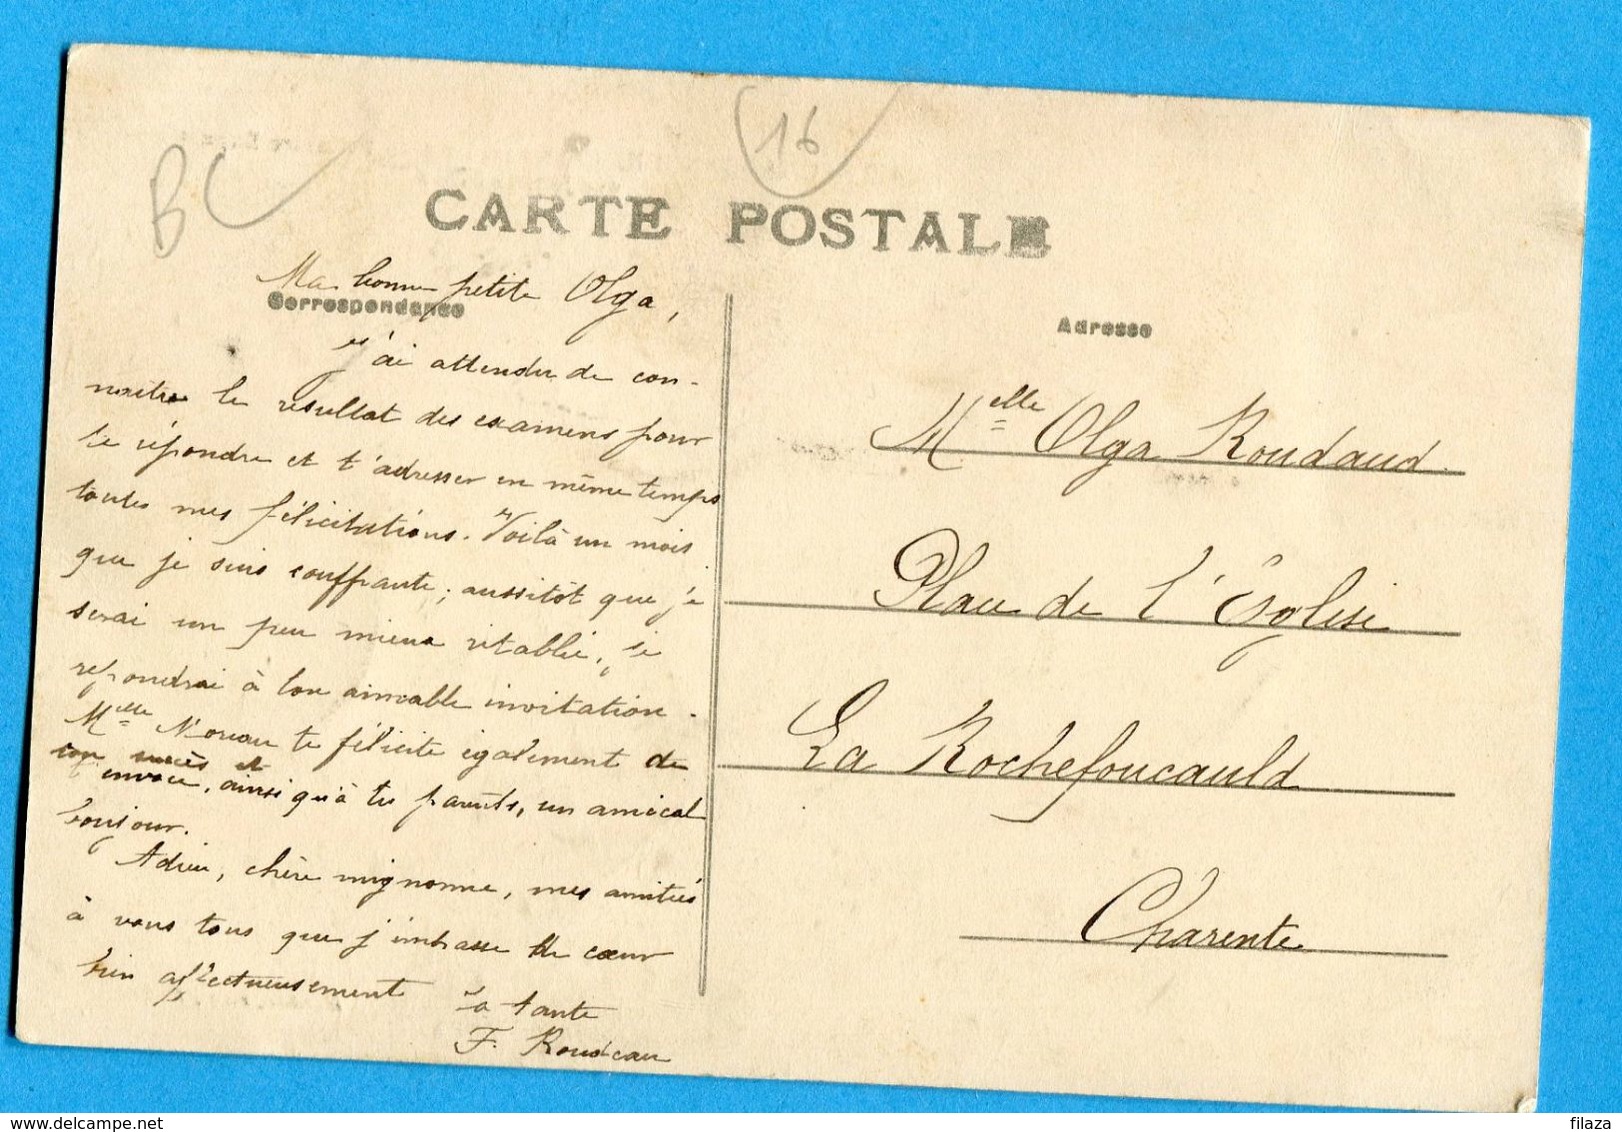 BC
16
CARTE POSTALE
Correspondance
Ma bonne petite Olga,
j'ai attendu de con-
naitre le résultat des examens pour
te répondre et t'adresser en même temps
toutes mes félicitations. Voilà un mois
que je suis souffrante; aussitôt que je
serai un peu mieux rétablie, je
repondrai à ton aimable invitation.
Melle te félicite également de
ton succès et
t'envoie, ainsi qu'à tes parents, un amical
bonjour.
Adieu, chère mignonne, mes amitiés
à vous tous que j'embrasse de cœur
bien affectueusement
Ta tante
F. Rondeau
Adresse
Melle Olga Roudaud
Place de l'Église
La Rochefoucauld
Charente
filaza